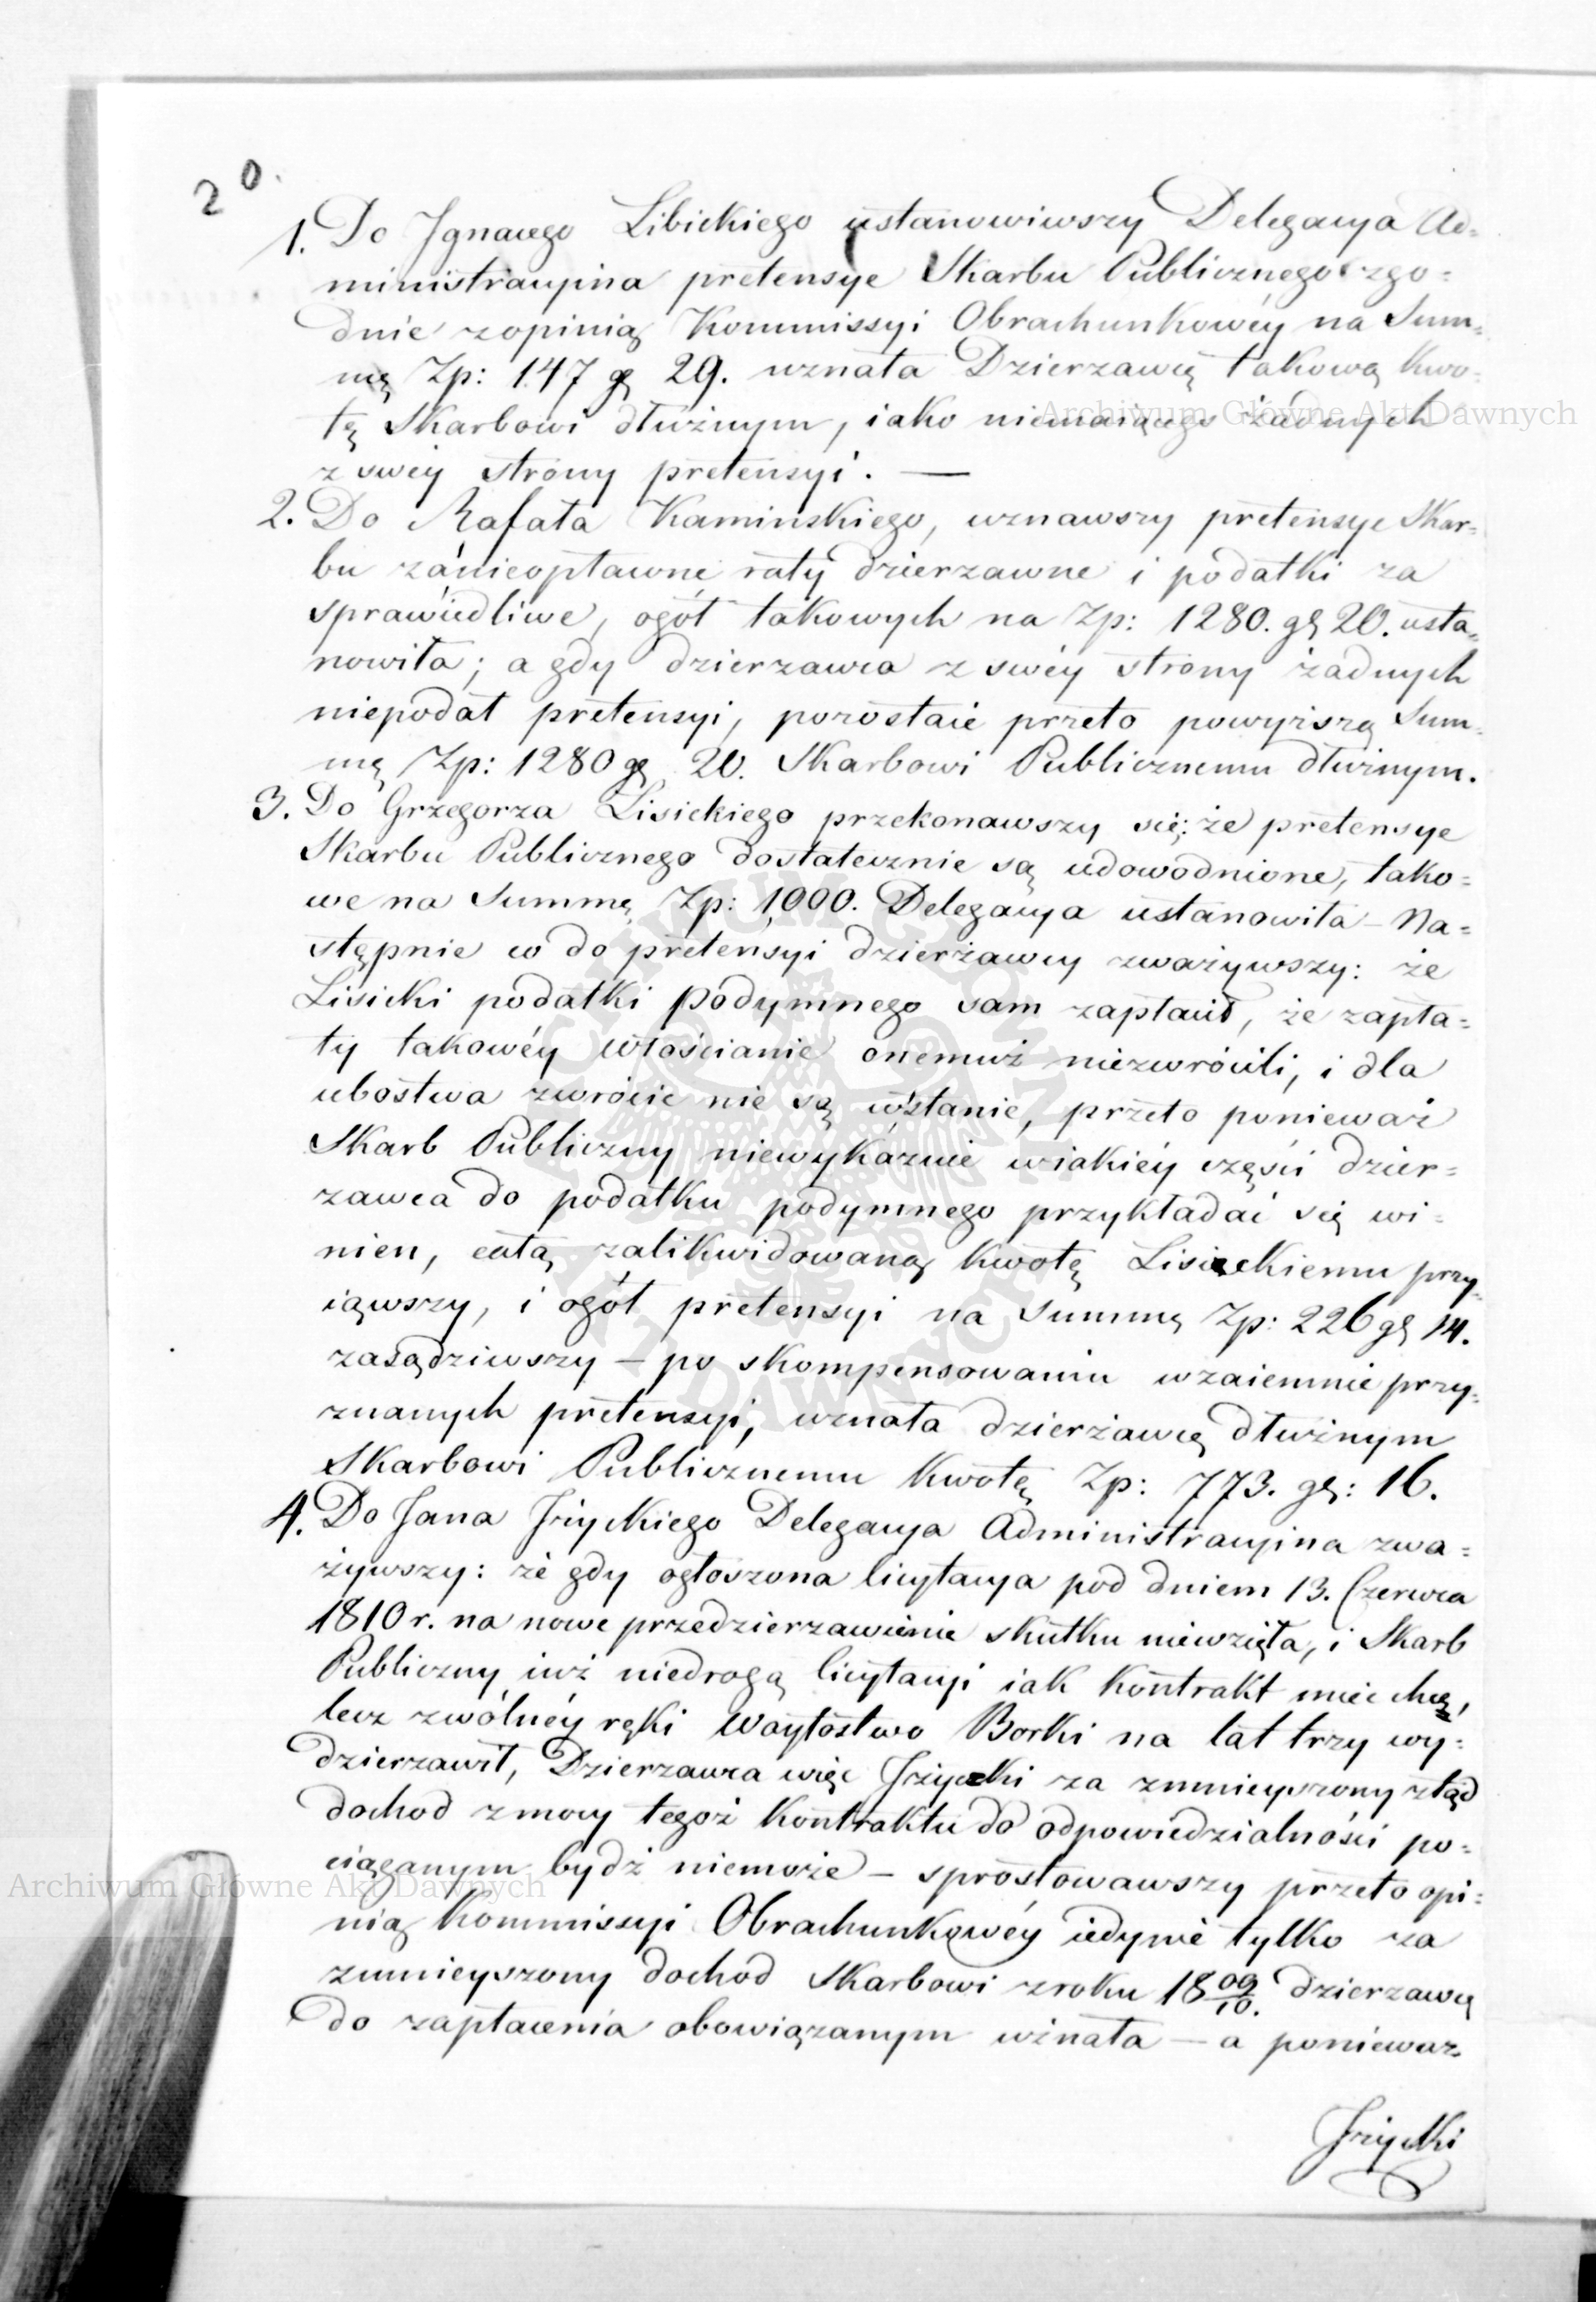 20.
1. Do Jgnacego Libickiego ustanowiwszy Delegacya Ad=
ministracyina pretensye Skarbu Publicznego zgo=
dnie zopinią Kommissyi Obrachunkowéy na Sum=
mę Zp: 147 gs 29. uznała Dzierzawcę takową kwo=
tę Skarbowi dłużnym, iako niemaiącego żadnych
z swéy strony pretensyi. —
2. Do Rafała Kaminskiego, uznawszy pretensye Skar=
bu zánieopłacone raty dzierzawne i podatki za
sprawiedliwe, ogół takowych na Zp: 1280. gs 20. usta=
nowiła; a gdy dzierzawca z swéy strony żadnych
niepodał pretensyi, pozostaie przeto powyższą Sum=
mę Zp: 1280 gs 20. Skarbowi Publicznemu dłużnym.
3. Do Grzegorza Lisickiego przekonawszy się: że pretensye
Skarbu Publicznego dostatecznie są udowodnione, tako=
we na Summę Zp: 1,000. Delegacya ustanowiła — Na=
stępnie co do pretensyi dzierżawcy zważywszy: że
Lisicki podatki podymnego sam zapłacił, że zapła=
ty takowéy włościanie onemuż niezwrócili, i dla
ubostwa zwrócić nie są wstanie, przeto ponieważ
Skarb Publiczny niewykázuie wiakiéy części dzier=
zawca do podatku podymnego przykładać się wi=
nien, całą zalikwidowaną kwotę Lisickiemu przy=
iąwszy, i ogół pretensyi na Summę Zp: 226 gs 14.
zasądziwszy — po skompensowaniu wzaiemnie przy=
znanych pretensyi, uznała dzierżawcę dłużnym
Skarbowi Publicznemu kwotę Zp: 773. gs: 16.
4. Do Jana Jżyckiego Delegacya Administracyina zwa=
żywszy: że gdy ogłoszona licytacya pod dniem 13. Czerwca
1810 r. na nowe przedzierzawienie skutku niewzięła, i Skarb
Publiczny iuż niedrogą licytacyi iak kontrakt mieć chcę,
lecz zwólnéy ręki Woytostwo Borki na lat trzy wy=
dzierzawił, Dzierzawca więc Jżycki za zmnieyszony ztąd
dochod zmocy tegoż kontraktu do odpowiedzialności po=
ciąganym bydź niemoże — sprostowawszy przeto opi=
nią Kommissyi Obrachunkowéy iedynie tylko za
zmnieyszony dochod Skarbowi zroku 1809/10. dzierzawcę
do zapłacenia obowiązanym uznała — a ponieważ
Jżycki
Archiwum Główne Akt Dawnych
Archiwum Główne Akt Dawnych
ARCHIWUM GŁÓWNE AKT DAWNYCH